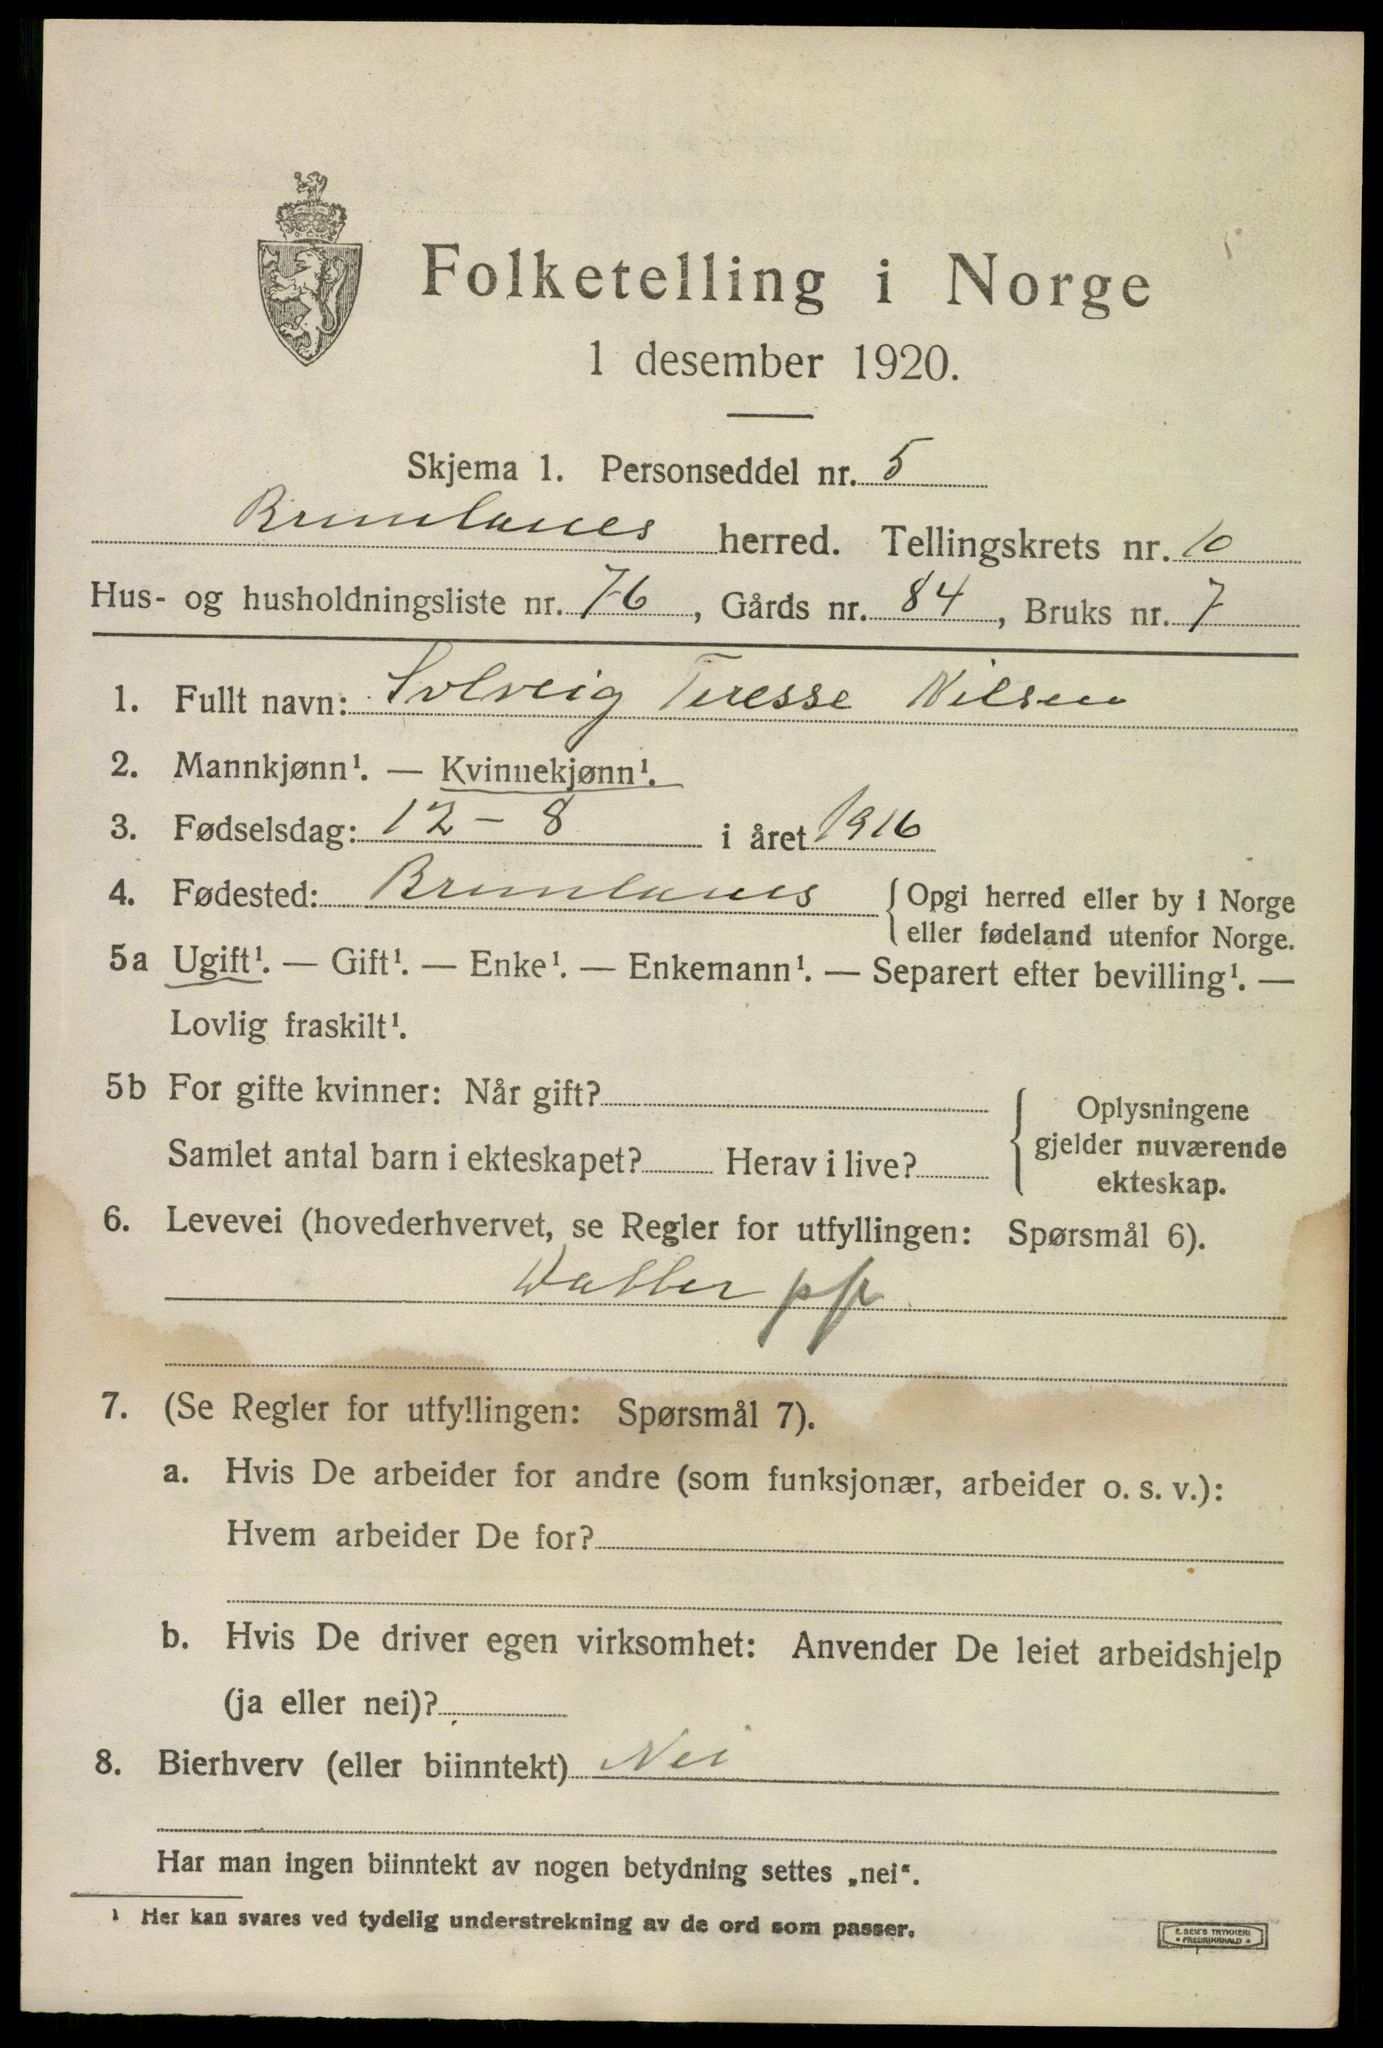 Folketelling i Norge
1 desember 1920.
Skjema 1. Personseddel nr. 5
Brunlanes herred. Tellingskrets nr. 10
Hus- og husholdningsliste nr. 76, Gårds nr. 84, Bruks nr. 7
1. Fullt navn: Solveig Teresse Nilsen
2. Mannkjønn¹. — Kvinnekjønn¹.
3. Fødselsdag: 12 – 8 i året 1916
4. Fødested: Brunlanes { Opgi herred eller by i Norge
eller fødeland utenfor Norge.
5a Ugift¹. — Gift¹. — Enke¹. — Enkemann¹. — Separert efter bevilling¹. —
Lovlig fraskilt¹.
5b For gifte kvinner: Når gift?
Samlet antal barn i ekteskapet? Herav i live?
{ Oplysningene
gjelder nuværende
ekteskap.
6. Levevei (hovederhvervet, se Regler for utfyllingen: Spørsmål 6).
Datter pp
7. (Se Regler for utfyllingen: Spørsmål 7).
a. Hvis De arbeider for andre (som funksjonær, arbeider o. s. v.):
Hvem arbeider De for?
b. Hvis De driver egen virksomhet: Anvender De leiet arbeidshjelp
(ja eller nei)?
8. Bierhverv (eller biinntekt) Nei
Har man ingen biinntekt av nogen betydning settes „nei“.
¹ Her kan svares ved tydelig understrekning av de ord som passer.
E. SEM'S TRYKKERI
* FREDRIKSHALD *